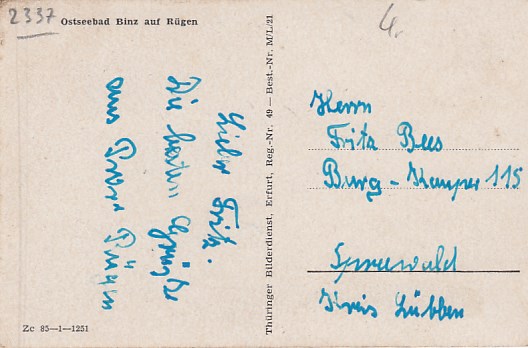 2337
Ostseebad Binz auf Rügen
4.
Lieber Fritz.
Die besten Grüße
aus Rügen
Thüringer Bilderdienst, Erfurt, Reg.-Nr. 49 — Best.-Nr. M/L/21
Herrn
Fritz Bees
Burg - Kauper 115
Spreewald
Kreis Lübben
Zc 85—1—1251